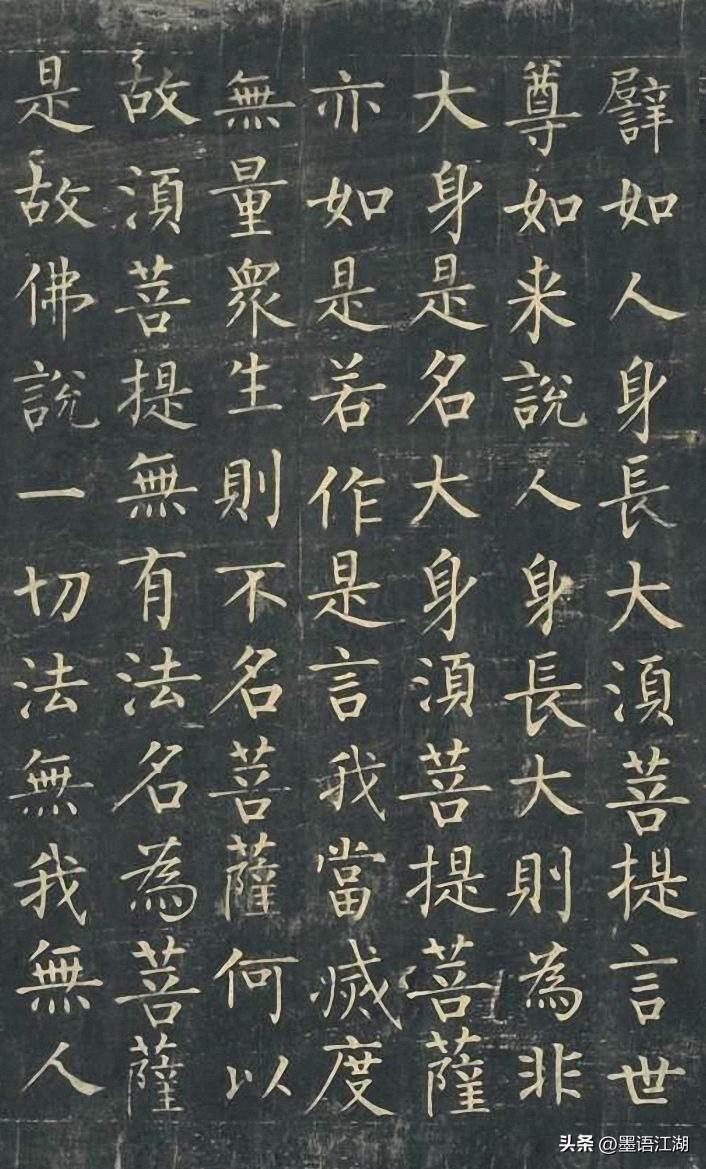 譬如人身長大須菩提言世
尊如来說人身長大則為非
大身是名大身須菩提菩薩
亦如是若作是言我當滅度
無量衆生則不名菩薩何以
故須菩提無有法名為菩薩
是故佛說一切法無我無人
头条 @墨语江湖